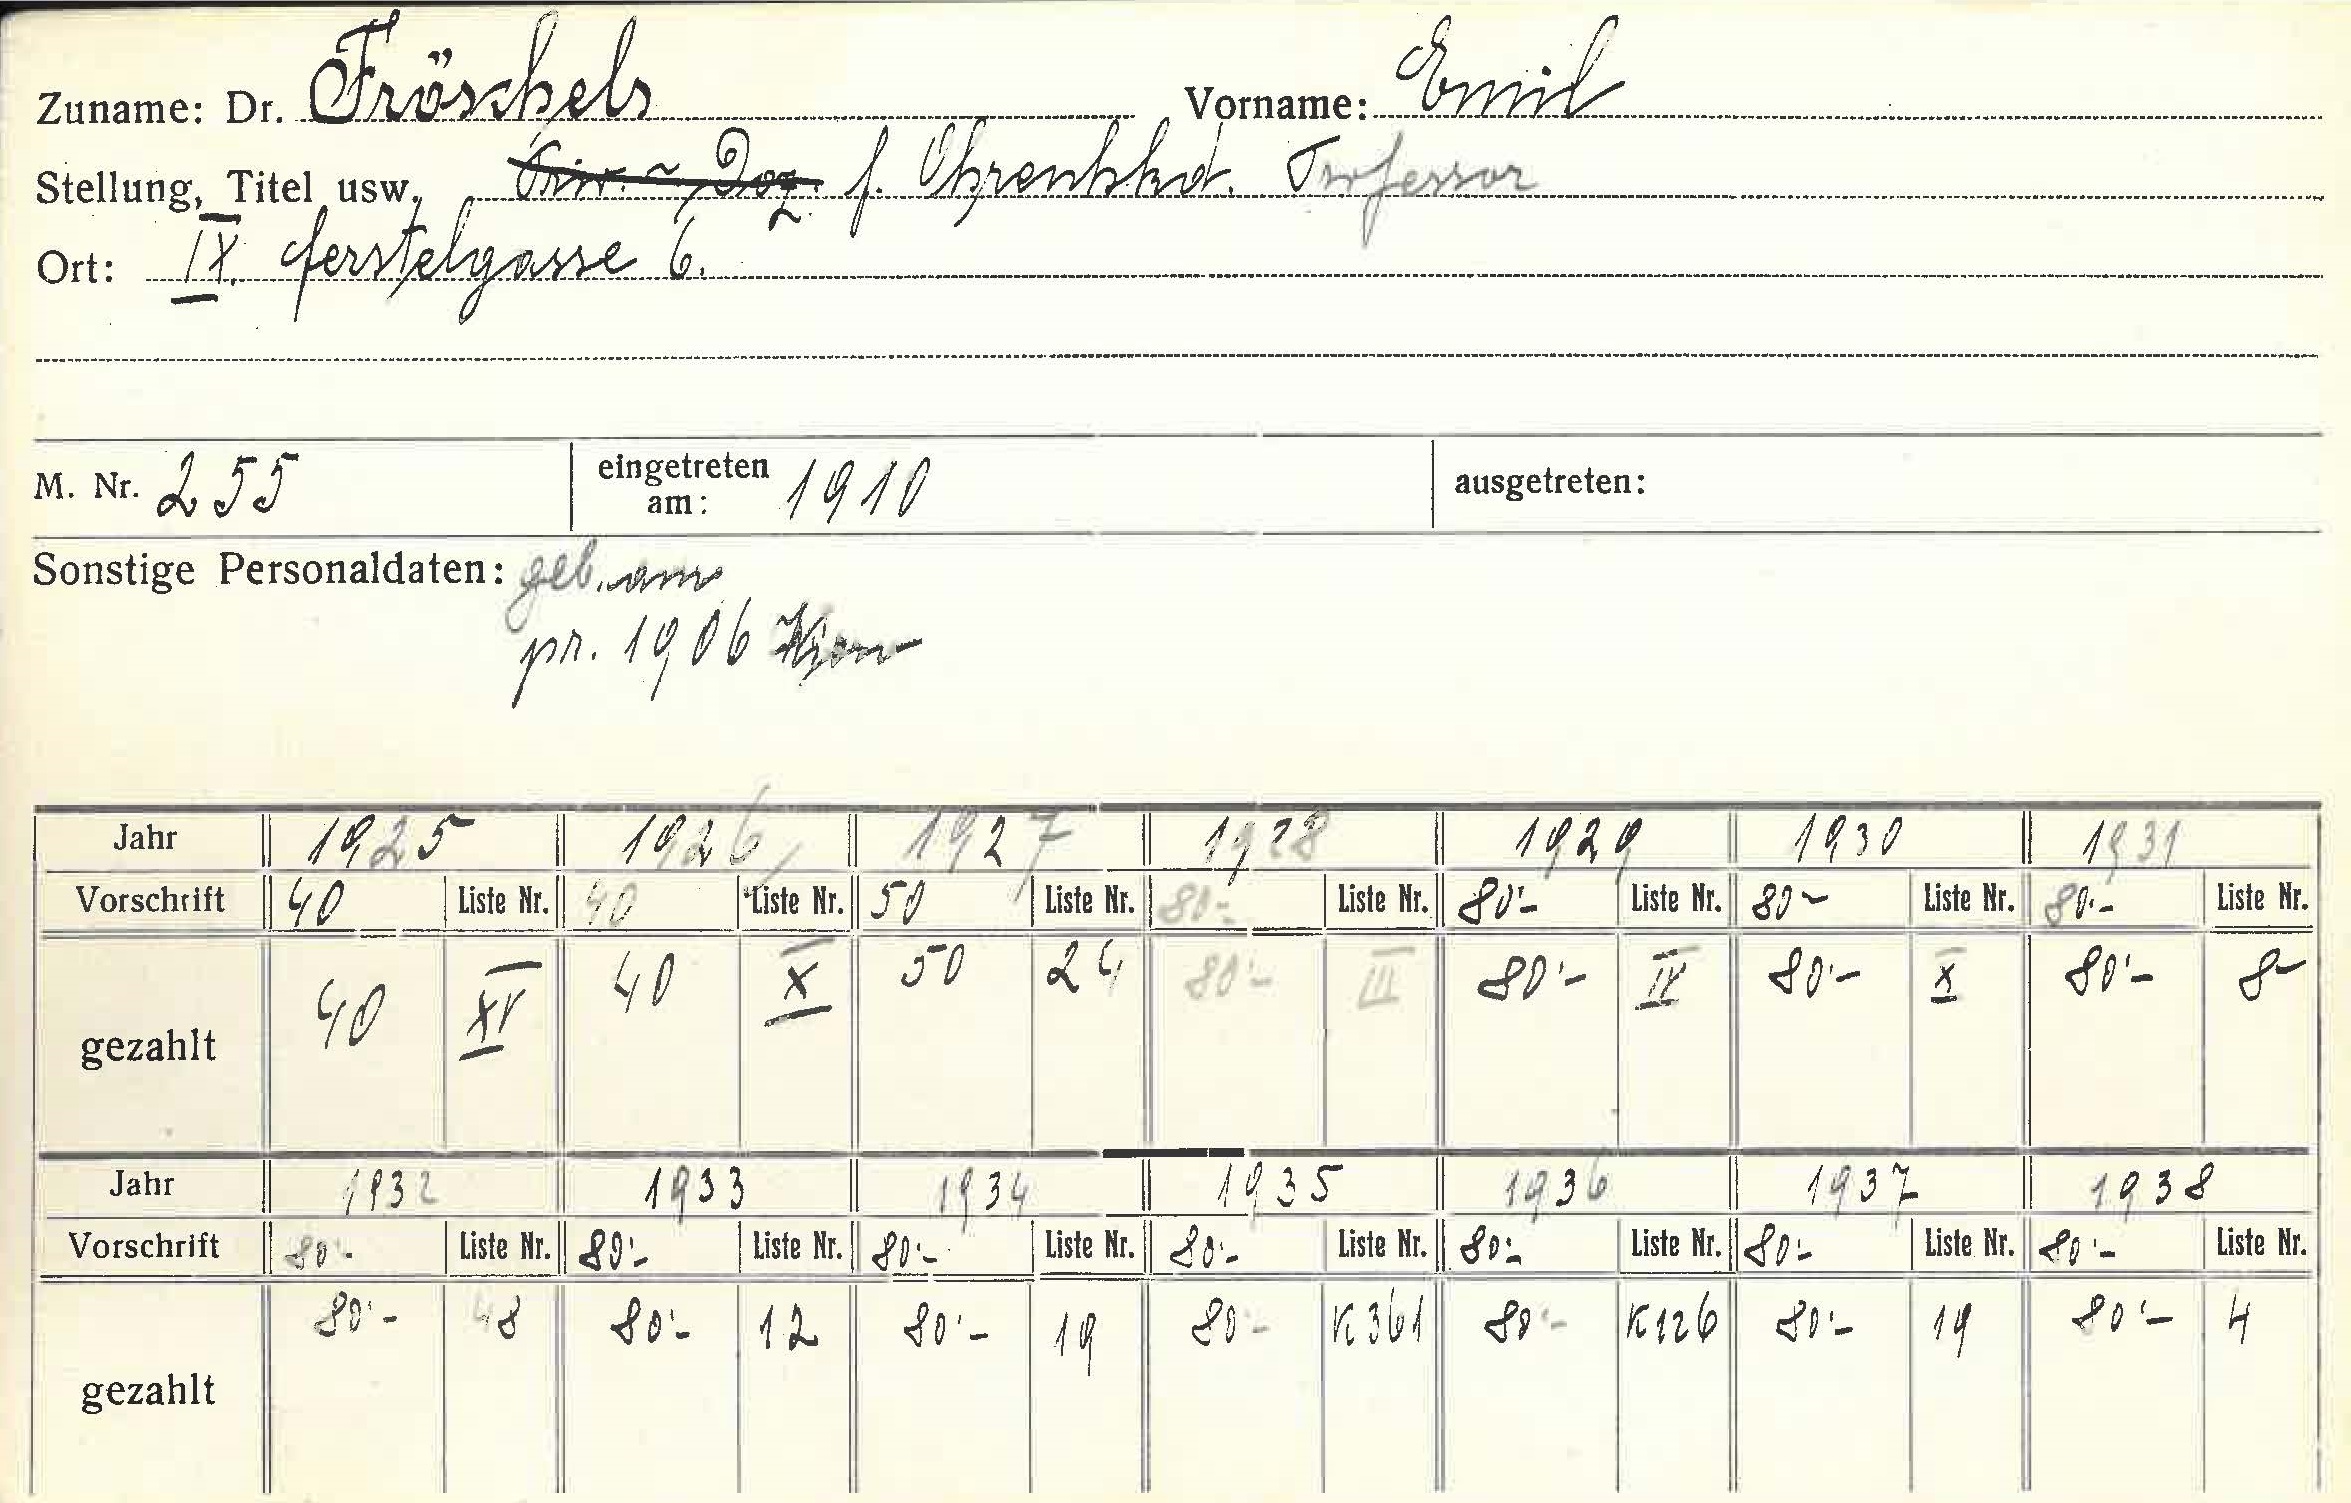 Zuname: Dr. Fröschels Vorname: Emil
Stellung, Titel usw. Priv. - Doz. f. Ohrenhkd. Professor
Ort: IX. Ferstelgasse 6.
M. Nr. 255 eingetreten am: 1910 ausgetreten:
Sonstige Personaldaten: geb. am
pr. 1906 Wien
Jahr 1925 1926 1927 1928 1929 1930 1931
Vorschrift 40 Liste Nr. 40 Liste Nr. 50 Liste Nr. 80·- Liste Nr. 80·- Liste Nr. 80- Liste Nr. 80·- Liste Nr.
gezahlt 40 XV 40 X 50 24 80·- III 80·- IV 80·- X 80·- 8-
Jahr 1932 1933 1934 1935 1936 1937 1938
Vorschrift 80·- Liste Nr. 80·- Liste Nr. 80·- Liste Nr. 80·- Liste Nr. 80·- Liste Nr. 80·- Liste Nr. 80·- Liste Nr.
gezahlt 80·- 48 80·- 12 80·- 19 80·- K361 80·- K126 80·- 19 80·- 4